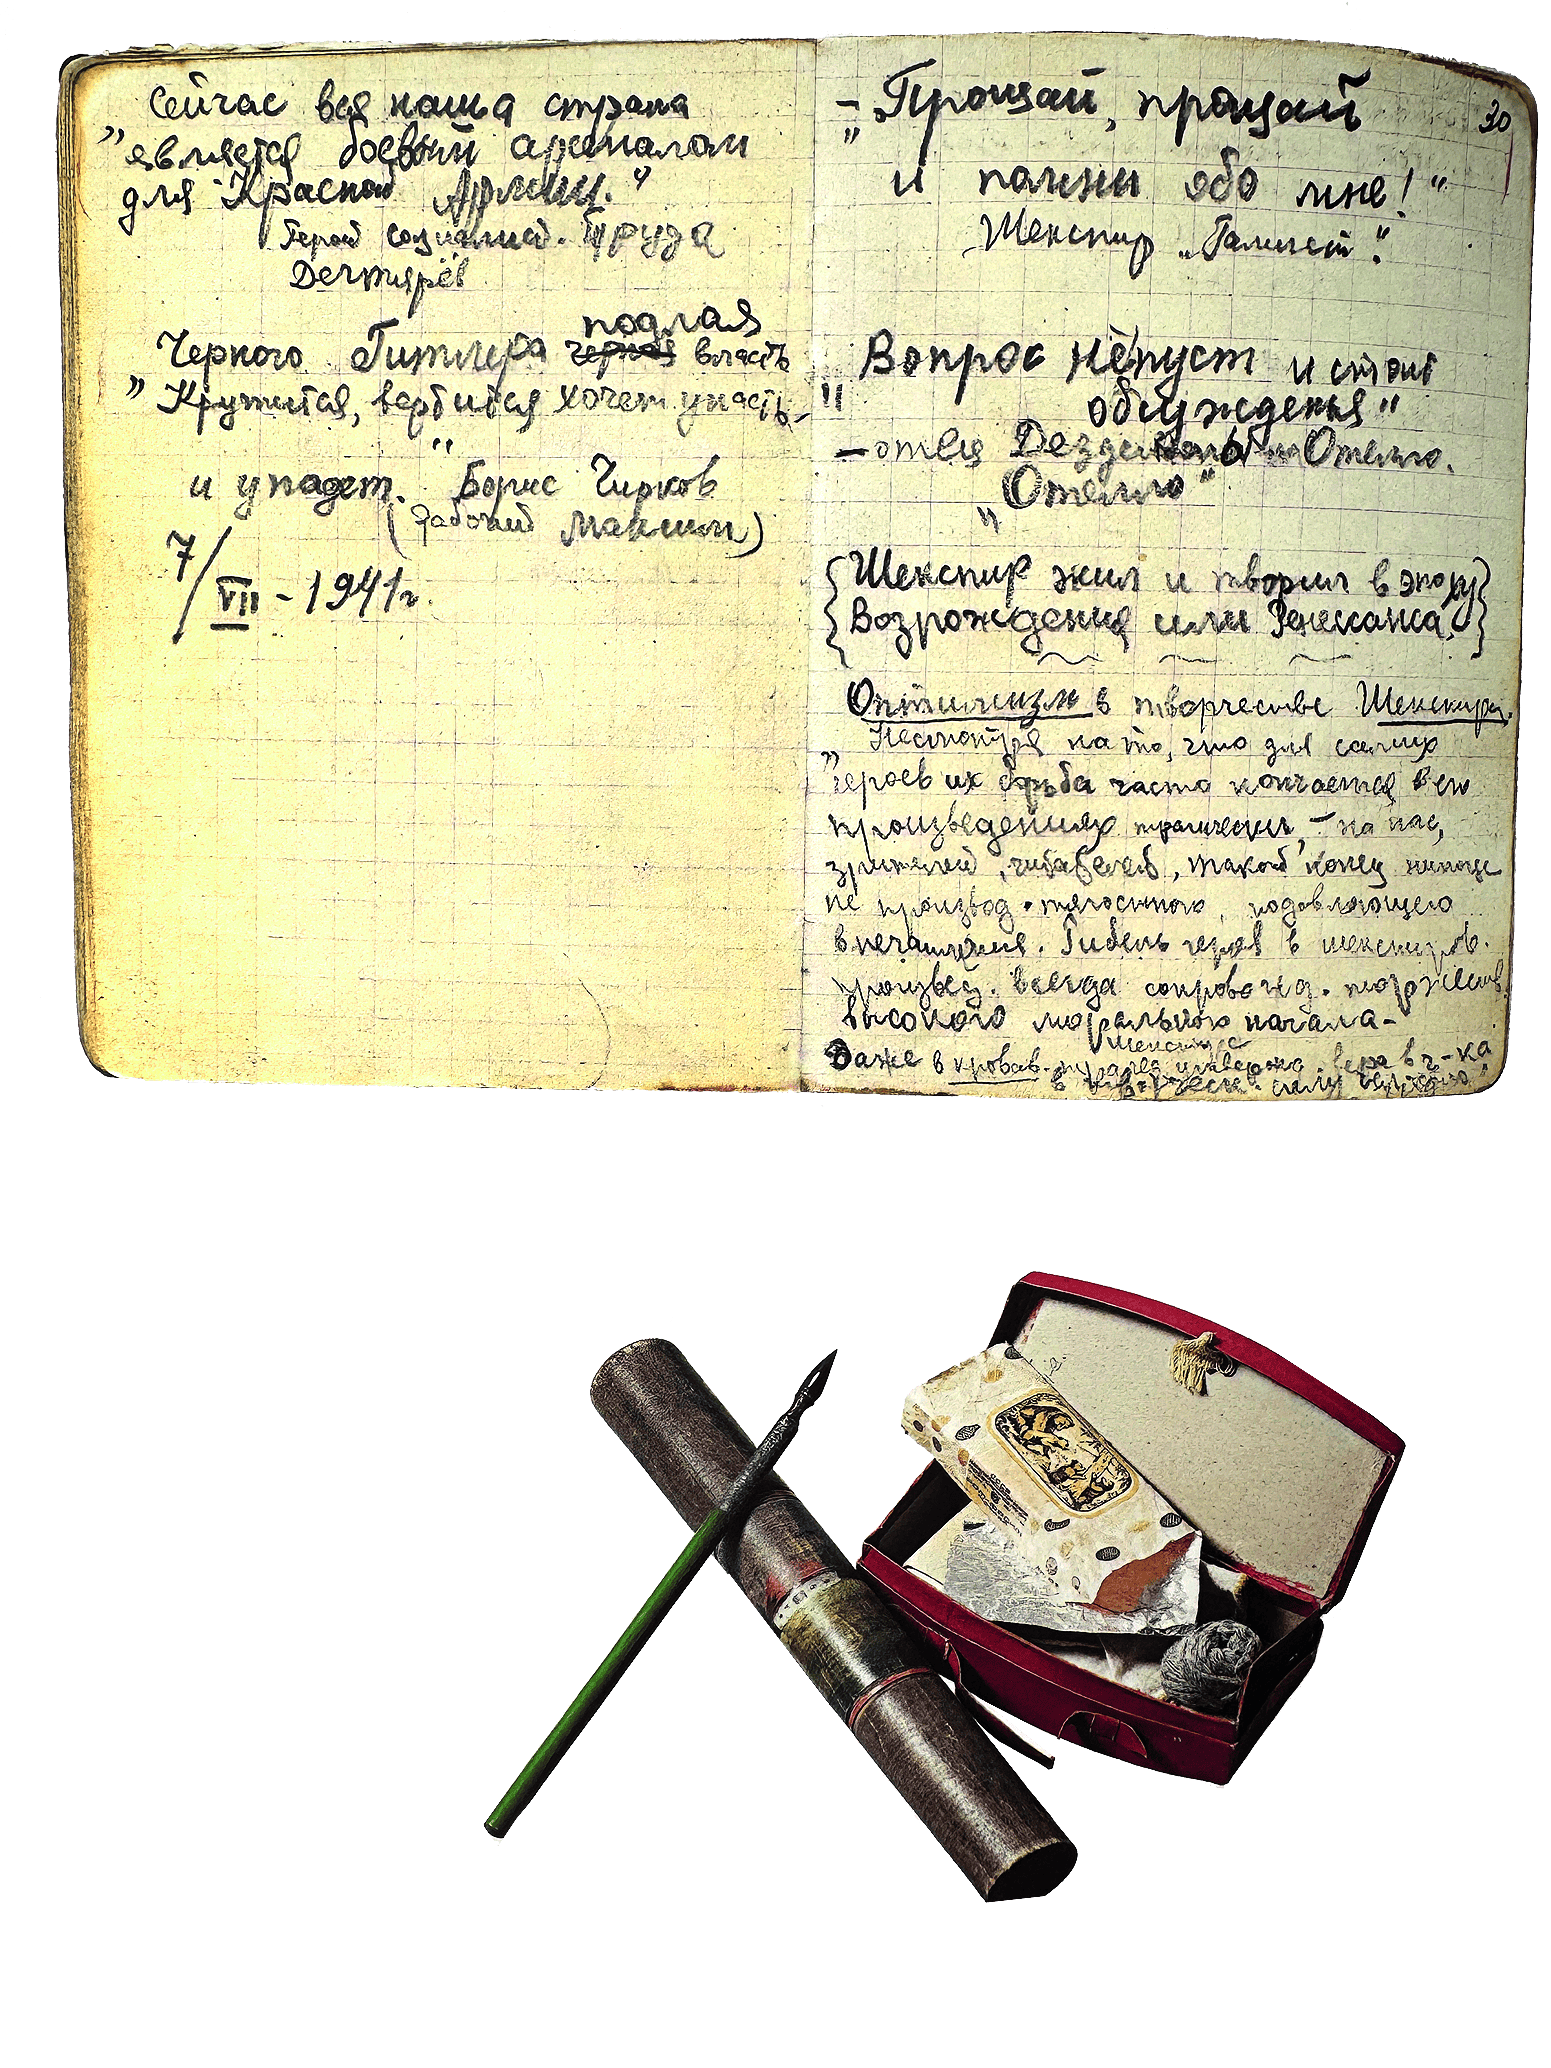 Сейчас вся наша страна
„является боевым арсеналом
для Красной Армии."
Герой социалист. Труда
Дегтярёв
подлая
Черного Гитлера черная власть
„Кружится, вертится хочет упасть -
и упадет." Борис Чирков
(рабочий Максим)
7/VII - 1941 г.
30
- „Прощай, прощай
и помни обо мне!"
Шекспир „Гамлет".
„Вопрос не пуст и стоит
обсужденья"
- отец Дездемоны Отелло.
„Отелло"
{Шекспир жил и творил в эпоху
Возрождения или Ренессанса.}
Оптимизм в творчестве Шекспира.
„Несмотря на то, что для самих
героев их борьба часто кончается в его
произведениях трагически, - на нас,
зрителей, читателей, такой конец
не производ. тягостного, подавляющего
впечатления. Гибель героев в шекспиров.
произвед. всегда сопровожд. торжеств.
высокого морального начала -
Даже в кровав. вера в ч-ка